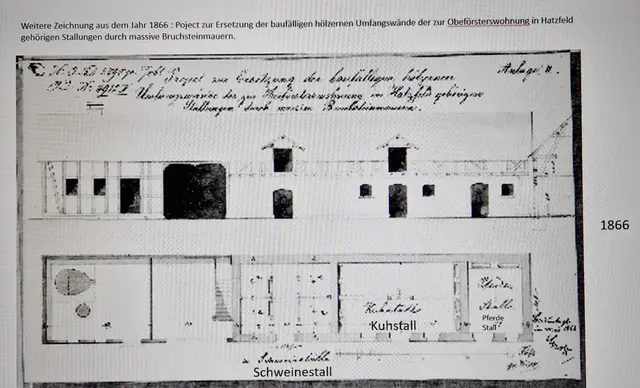 Weitere Zeichnung aus dem Jahr 1866 : Poject zur Ersetzung der baufälligen hölzernen Umfangswände der zur Obeförsterswohnung in Hatzfeld
gehörigen Stallungen durch massive Bruchsteinmauern.
Project zur Ersetzung der baufälligen hölzernen
Anlage
Umfangswände der zur Oberförsterwohnung in Hatzfeld gehörigen
Stallungen durch massive Bruchsteinmauern.
1866
Kuhstall
Kuhstall
Pferde
Stall
Pferde
Stall
Schweineställe
Schweinestall